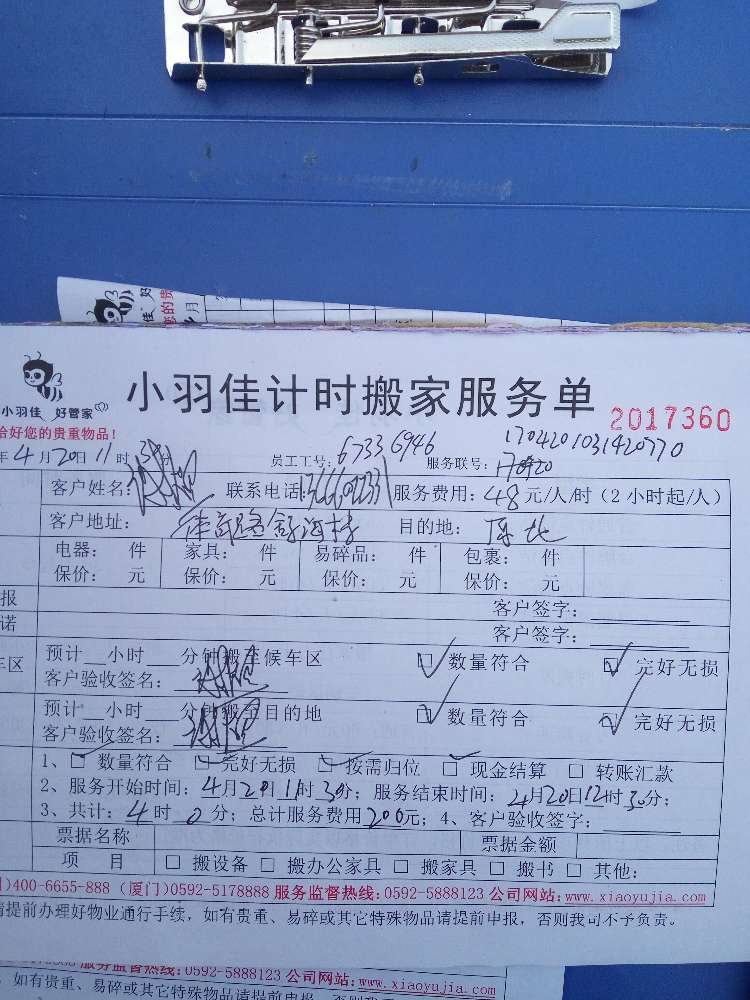 小羽佳 好管家
小羽佳计时搬家服务单
2017360
恰好您的贵重物品!
年4月20日11时30分
员工工号: 6733 6946
服务联号:
1704201031420770
客户姓名: 联系电话: 服务费用: 48元/人/时(2小时起/人)
客户地址: 目的地:
电器: 件 家具: 件 易碎品: 件 包裹: 件
保价: 元 保价: 元 保价: 元 保价: 元
报 客户签字:
诺 客户签字:
车区 预计 小时 分钟搬至候车区 数量符合 完好无损
客户验收签名:
预计 小时 分钟搬至目的地 数量符合 完好无损
客户验收签名:
1、 数量符合 完好无损 按需归位 现金结算 转账汇款
2、服务开始时间: 4月20日11时30分; 服务结束时间: 4月20日12时30分;
3、共计: 4时0分; 总计服务费用200元; 4、客户验收签字:
票据名称 票据金额
项 目 搬设备 搬办公家具 搬家具 搬书 其他:
)400-6655-888 (厦门)0592-5178888 服务监督热线: 0592-5888123 公司网站: www.xiaoyujia.com
请提前办理好物业通行手续, 如有贵重、易碎或其它特殊物品请提前申报, 否则我司不予负责。
服务监督热线: 0592-5888123 公司网站: www.xiaoyujia.com
如有贵重、易碎或其它特殊物品请提前申报, 否则我司